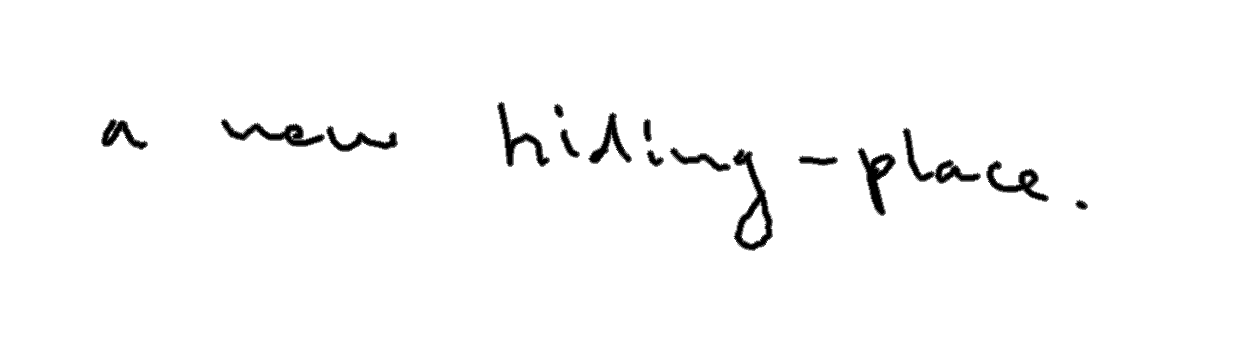 a new hiding-place.